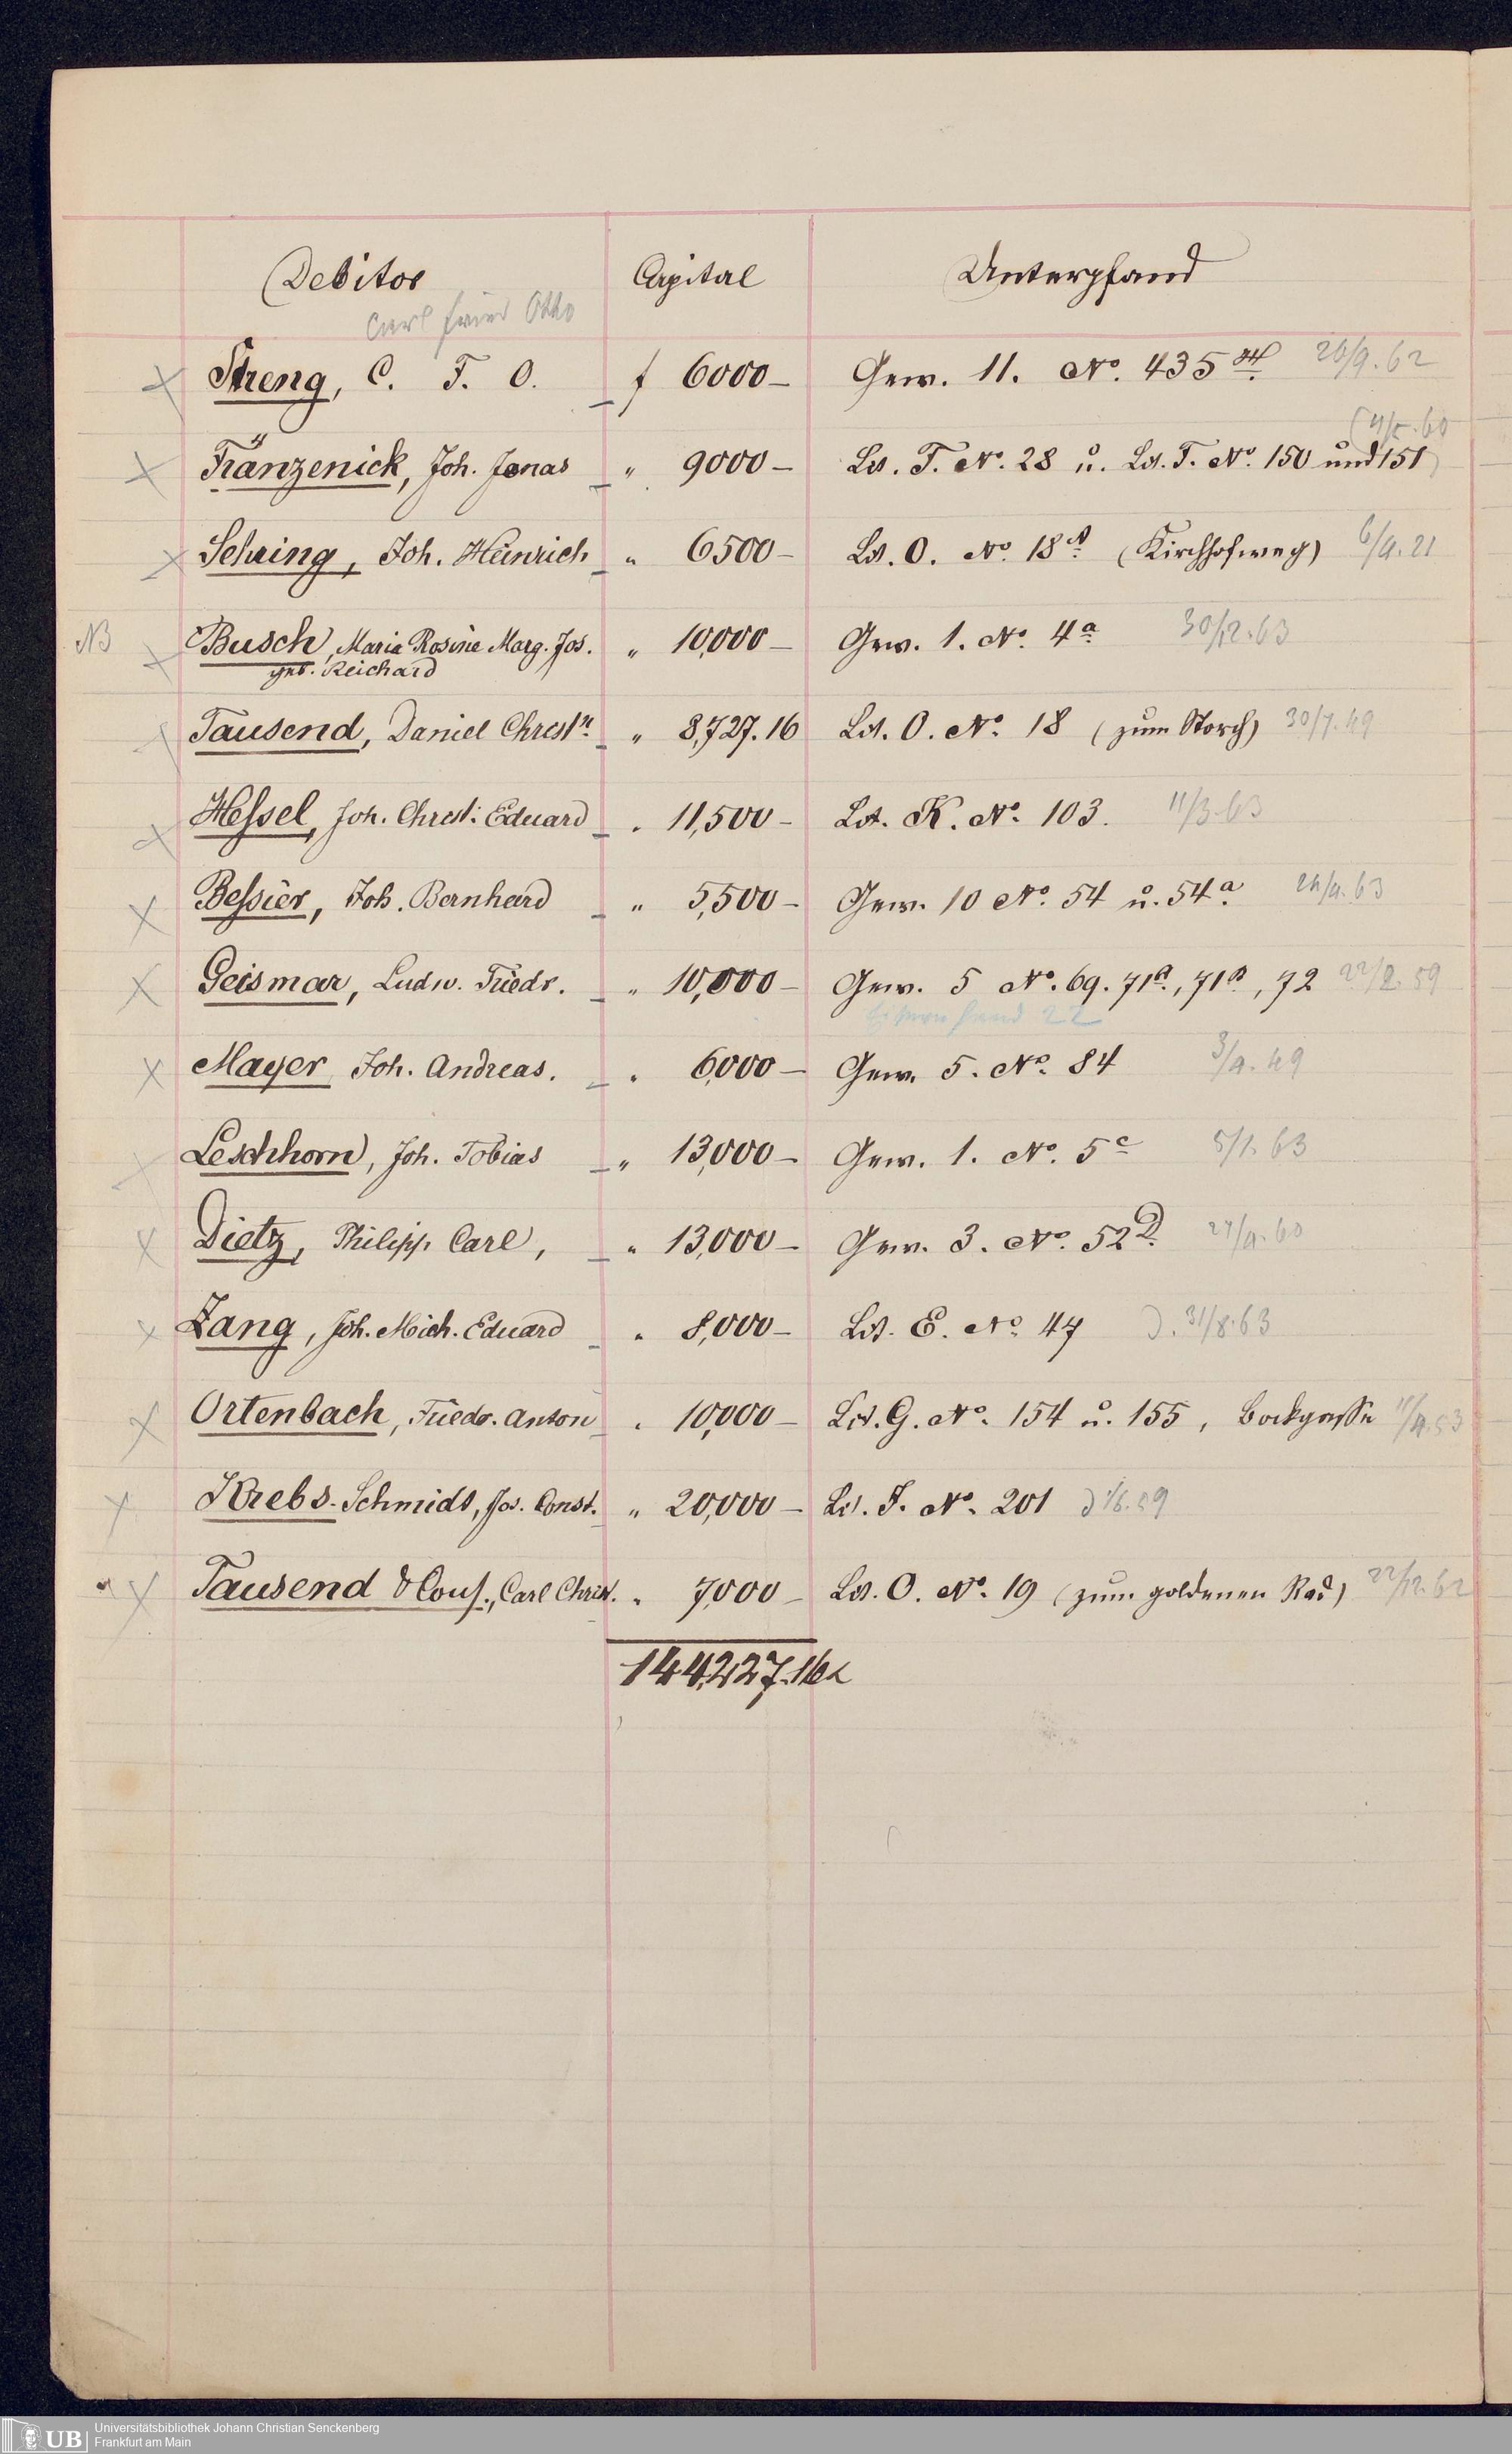 Debitor Capital Unterpfand
Carl Fried Otto
Streng, C. F. O. f 6000 — Gew. 11. No. 435 26/9. 62
Fränzenick, Joh. Jonas " 9000 — Lit. F. No. 28 u. Lit. F. No. 150 und 151
Sehring, Joh. Heinrich " 6500 — Lit. O. No. 18 A (Kirchhofweg) 6/9. 21
NB Busch, Maria Rosine Marg. Jos. " 10,000 — Gew. 1. No. 4 a 30/12. 63
geb. Reichard
Tausend, Daniel Christn " 8,727. 16 Lit. O. No. 18 (zum Storch) 30/7. 49
Hessel, Joh. Christ: Eduard " 11,500 — Lit. K. No. 103. 11/3. 63
Bessier, Joh. Bernhard " 5,500 — Gew. 10 No. 54 u. 54 a 63
Geismar, Ludw. Friedr. " 10,000 — Gew. 5 No. 69. 71 a, 71 B, 72 59
22
Mayer Joh. Andreas. " 6,000 — Gew. 5. No. 84 3/9. 49
Leschhorn, Joh. Tobias " 13,000 — Gew. 1. No. 5 c 5/1. 63
Dietz, Philipp Carl, " 13,000 — Gew. 3. No. 52 D 60
Zang, Joh. Mich. Eduard " 8,000 — Lit. E. No. 47 31/8. 63
Ortenbach, Friedr. Anton " 10,000 — Lit. G. No. 154 u. 155, Bockgasse 53
Krebs-Schmidt, Jos. Const. " 20,000 — Lit. J. No. 201 1/6. 59
Tausend & Cons., Carl Christ. " 7,000 — Lit. O. No. 19 (zum goldenen Rad) 22/12. 62
144,227. 16
UB Universitätsbibliothek Johann Christian Senckenberg
Frankfurt am Main